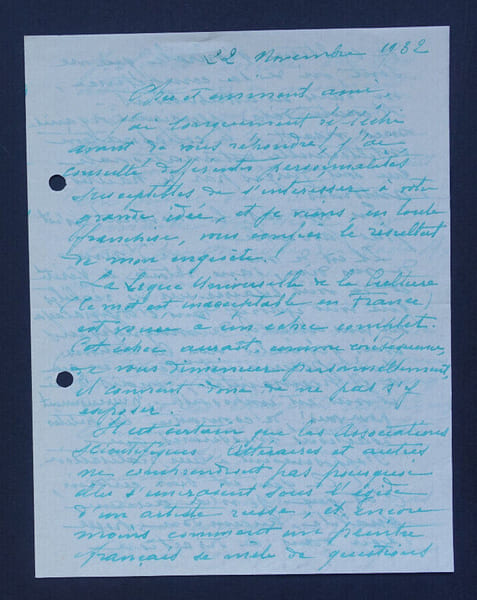 22 Novembre 1932
Cher et éminent ami,
J'ai longuement réfléchi
avant de vous répondre, j'ai
consulté différentes personnalités
susceptibles de s'intéresser à votre
grande idée, et je viens, en toute
franchise, vous confier le résultat
de mon enquête.
La Ligue Universelle de la Culture
(ce mot est inacceptable en France)
est vouée à un échec complet.
Cet échec aurait, comme conséquence,
de vous diminuer personnellement,
il convient donc de ne pas s'y
exposer.
Il est certain que les Associations
Scientifiques Littéraires et autres
ne comprendront pas pourquoi
elles s'uniraient sous l'égide
d'un artiste russe, et encore
moins comment un peintre
français se mêle de questions